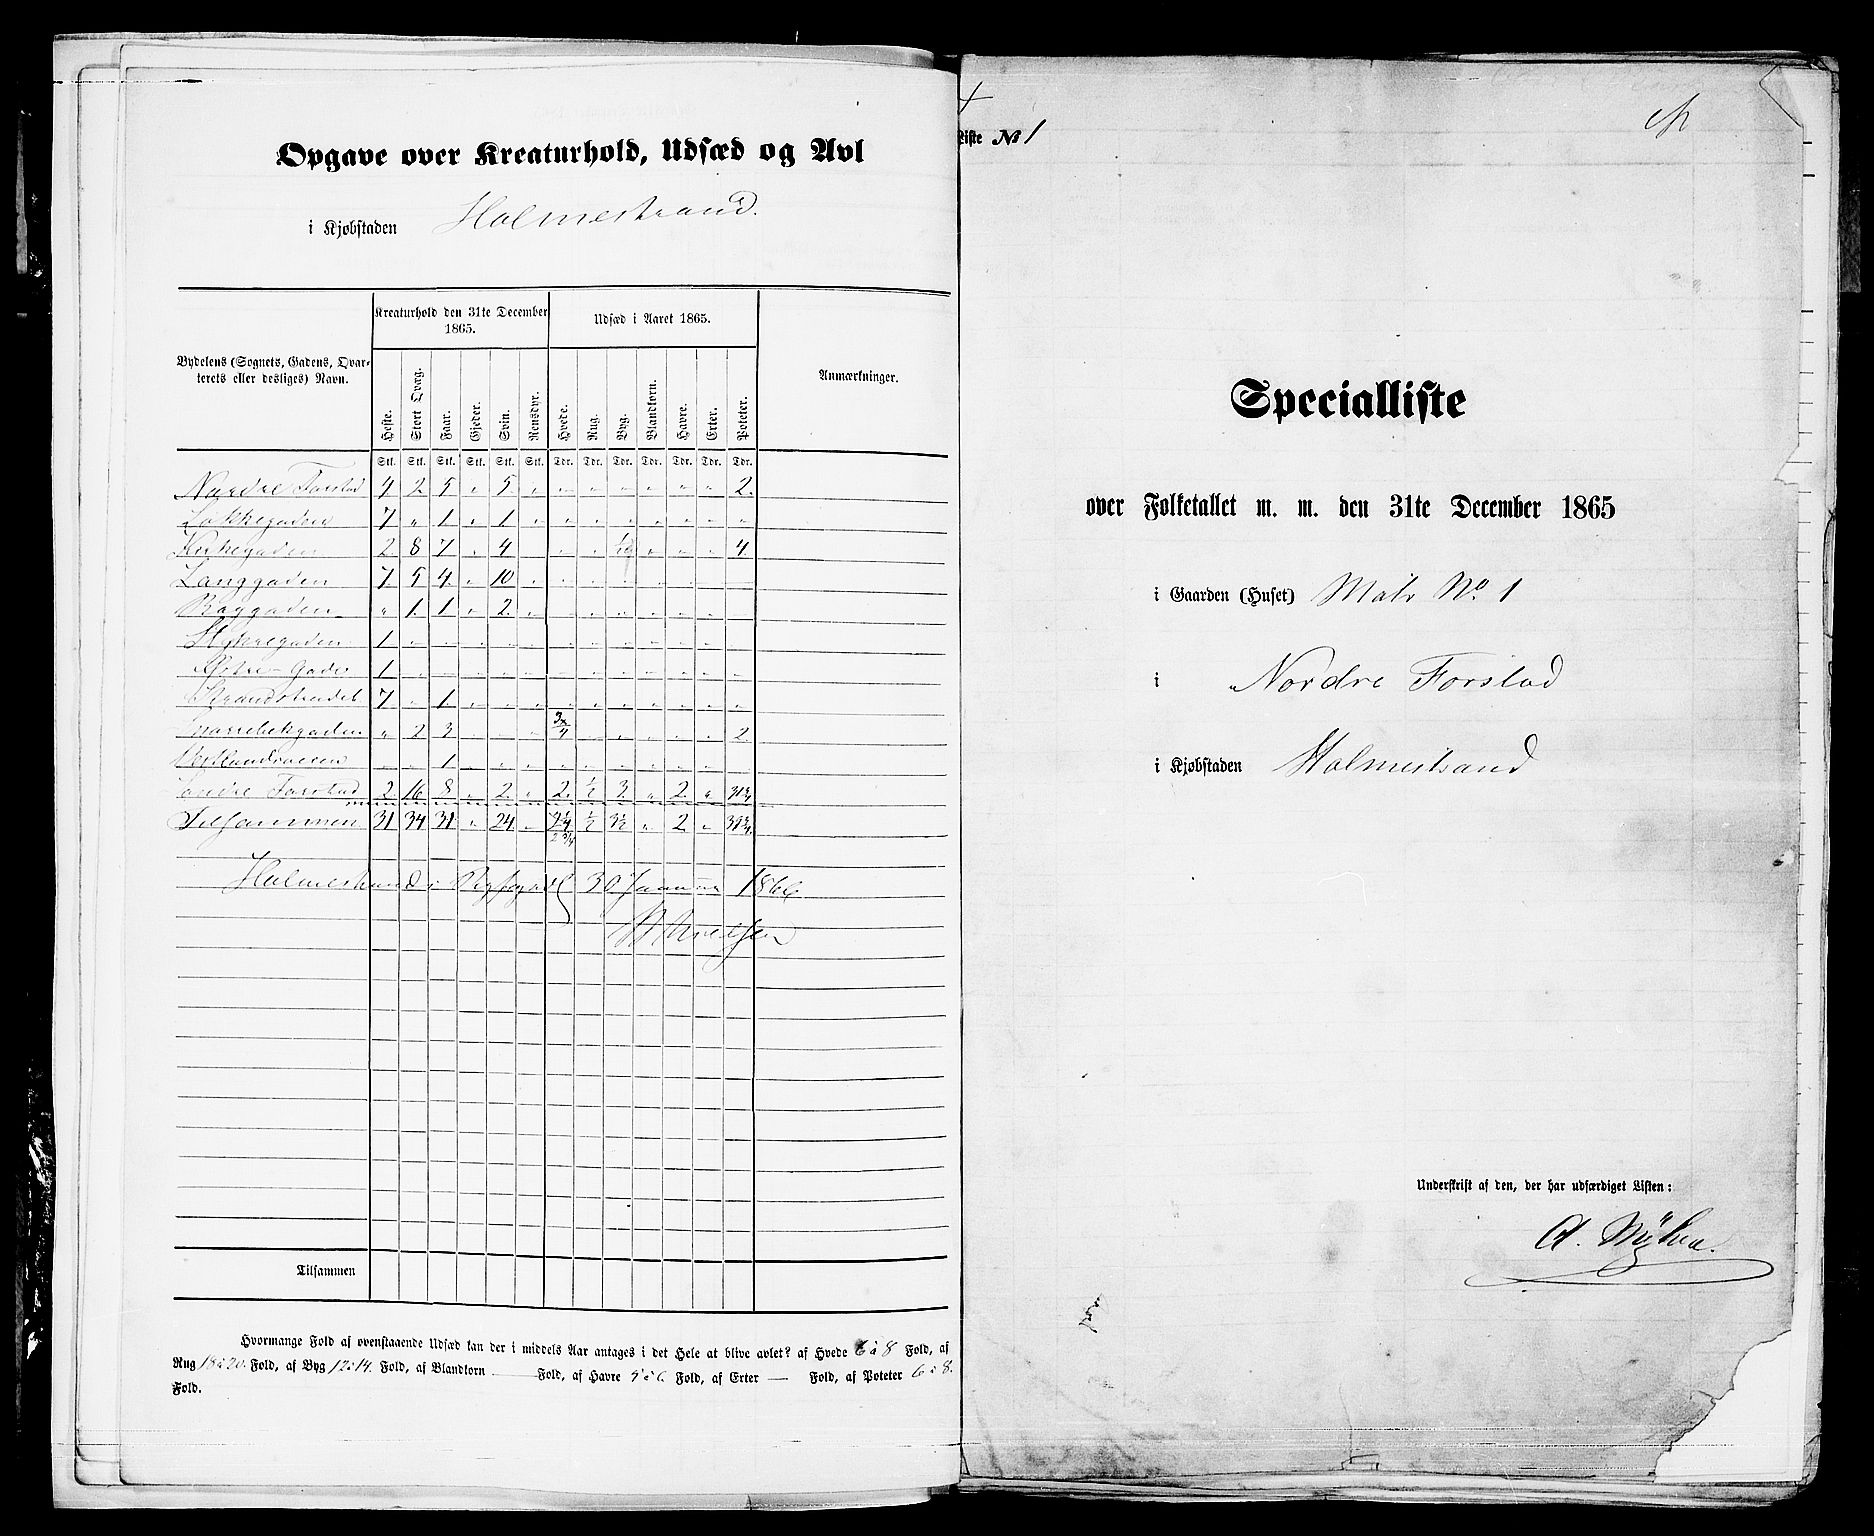 Opgave over Kreaturhold, Udsæd og Avl
i Kjøbstaden Holmestrand.
Bydelens (Sognets, Gadens, Qvarterets eller desliges) Navn.
Kreaturhold den 31te December 1865.
Udsæd i Aaret 1865.
Anmærkninger.
Heste. Stort Qvæg. Faar. Gjeder. Svin. Rensdyr. Hvede. Rug. Byg. Blandkorn. Havre. Erter. Poteter.
Stk. Stk. Stk. Stk. Stk. Stk. Tdr. Tdr. Tdr. Tdr. Tdr. Tdr. Tdr.
Nordre Forstad 4 2 5 " 5 " " " " " " " 2.
Løkkegaden 7 " 1 " 1 " " " " " " " "
Kirkegaden 2 8 7 " 4 " " " " " " 4.
Langgaden 7 5 4 " 10 "
Baggaden " 1 1 " 2 "
1 " " "
Gade 1 " " "
Strandstrædet 7 " 1 "
Snarrebekgaden " 2 3 " " " 3/4 " " " " " 2
" " 1 "
Søndre Forstad 2 16 8 " 2 " 2 1/2 3 " 2 " 31 3/4
Tilsammen 31 34 31 " 24 " 2 3/4 1/2 3 1/2 " 2 " 39 3/4
Holmestrands Byfogd 30 Januar 1866
Tilsammen
Hvormange Fold af ovenstaaende Udsæd kan der i middels Aar antages i det Hele at blive avlet? af Hvede 6 à 8 Fold, af
Rug 18 à 20. Fold, af Byg 12 à 14. Fold, af Blandkorn — Fold, af Havre 5 à 6. Fold, af Erter — Fold, af Poteter 6 à 8.
Fold.
Liste No 1
Specialliste
over Folketallet m. m. den 31te December 1865
i Gaarden (Huset) Matr No. 1
i Nordre Forstad
i Kjøbstaden Holmestrand
Underskrift af den, der har udfærdiget Listen: